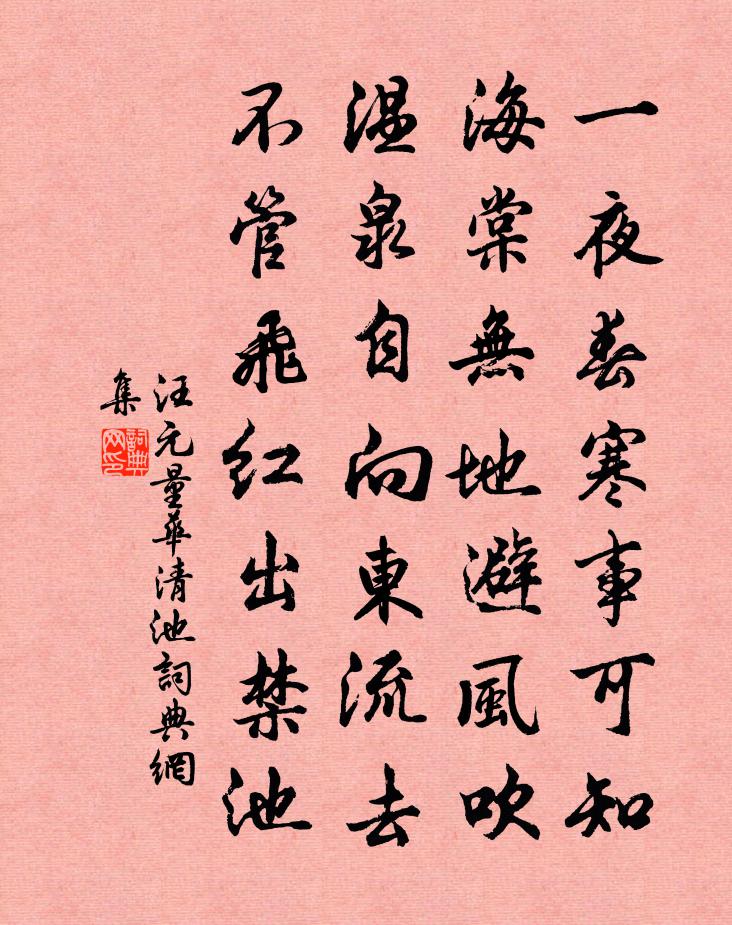 一夜春寒事可知
海棠無地避風吹
温泉自向東流去
不管飛紅出禁池
汪元量華清池詞典網
集
詞典
网印